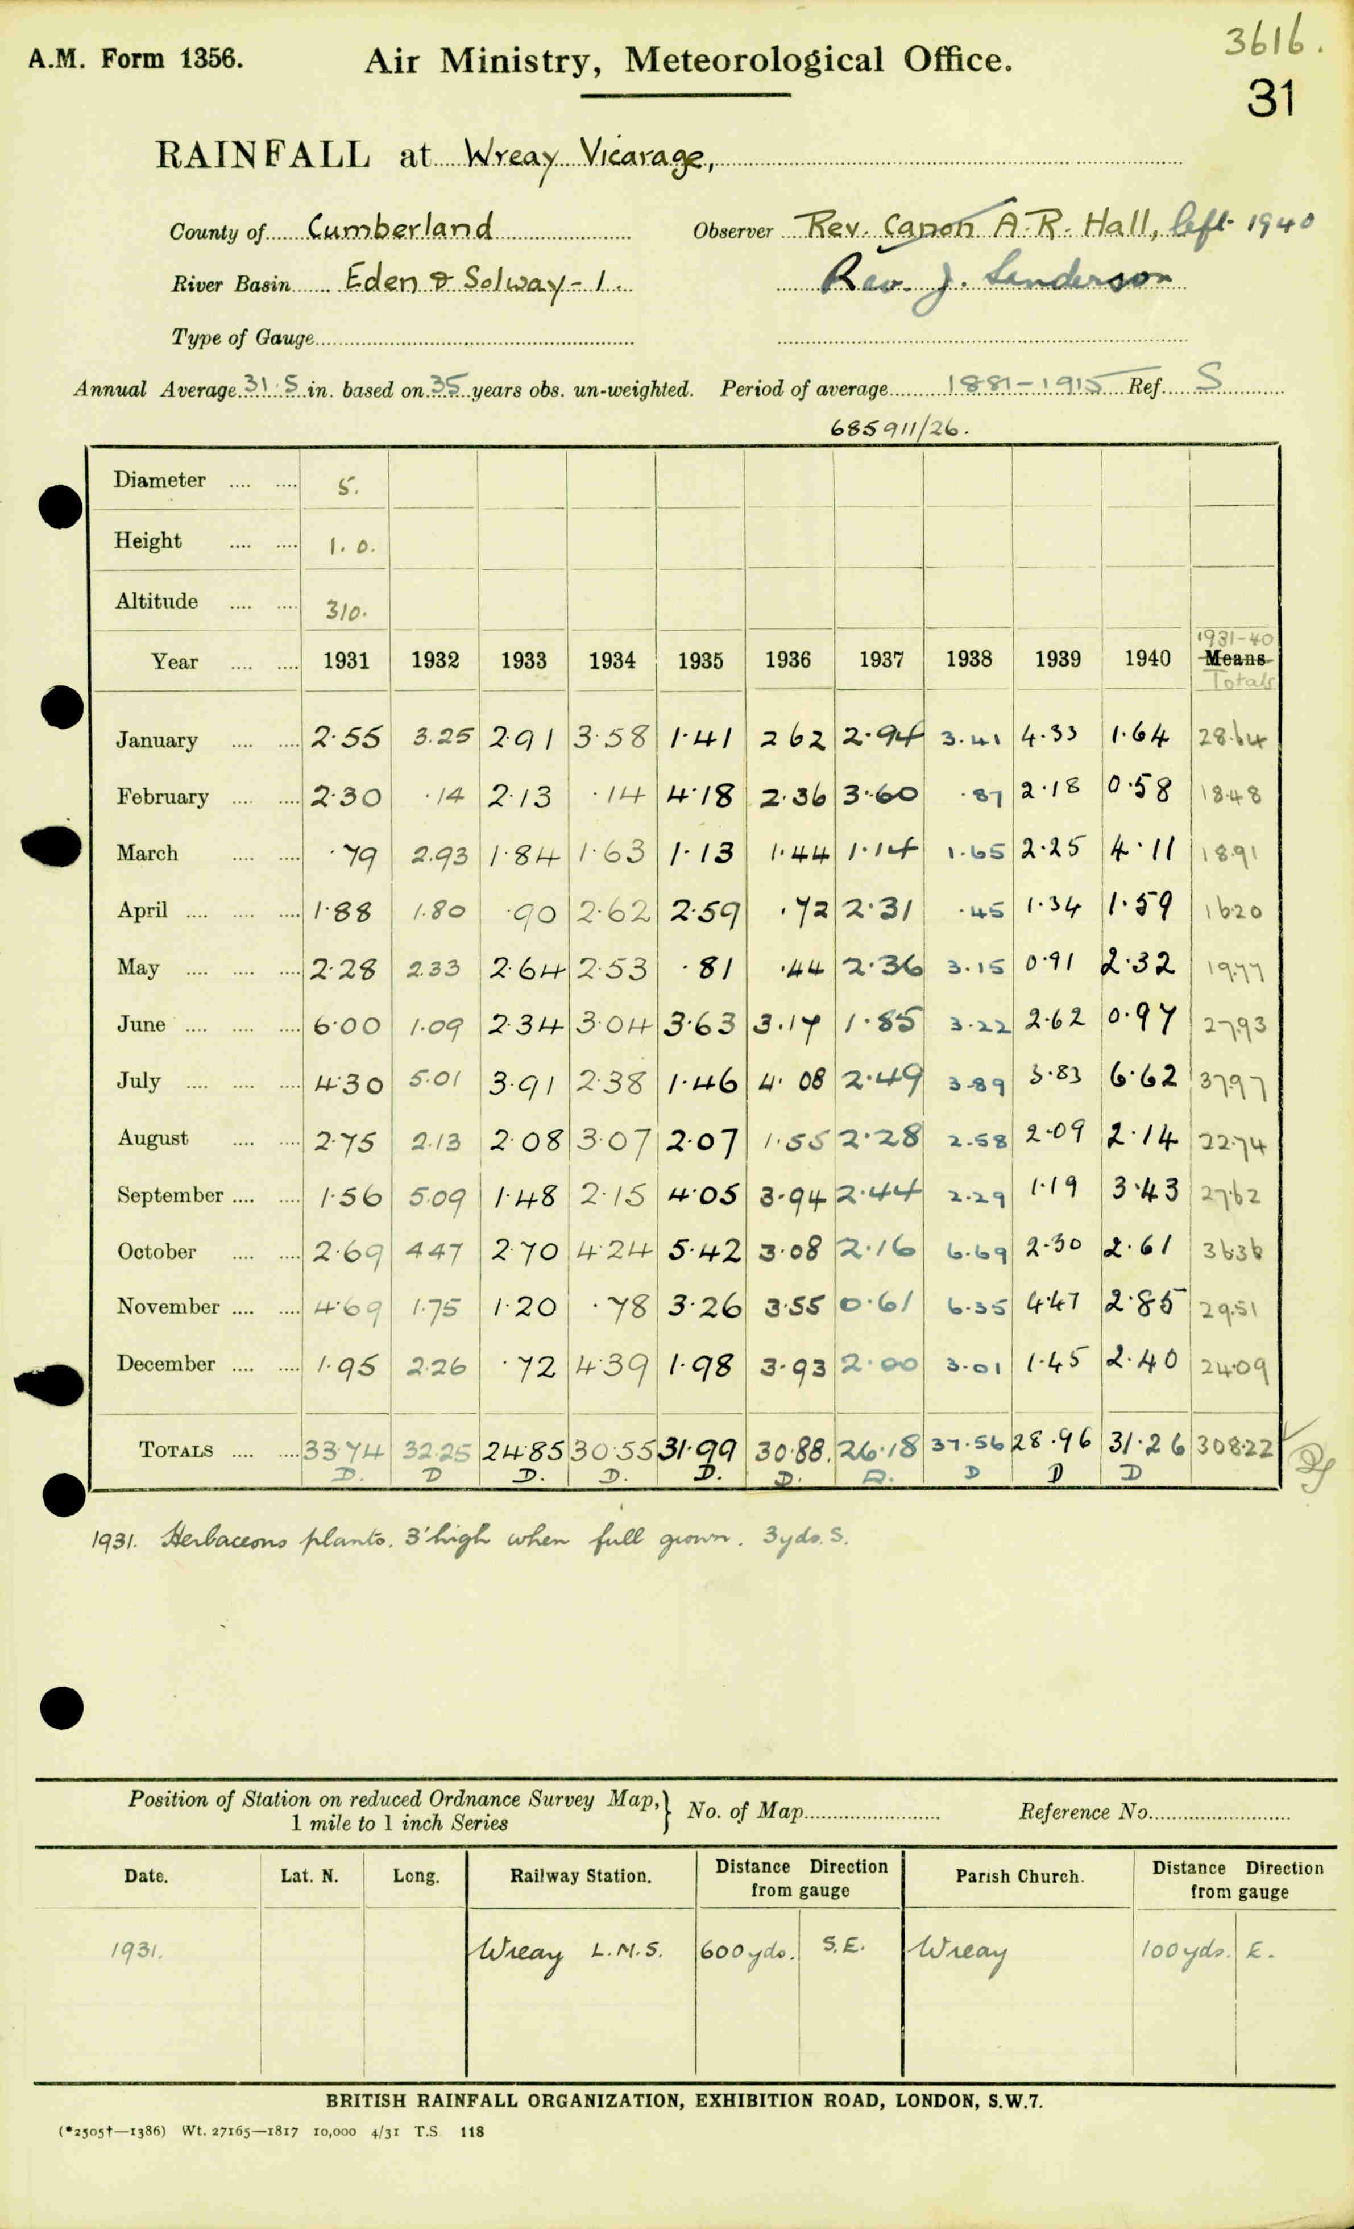 A.M. Form 1356.
Air Ministry, Meteorological Office.
3616.
31
RAINFALL at Wreay Vicarage,
County of Cumberland Observer Rev. Canon A.R. Hall, left 1940
River Basin Eden & Solway - 1. Rev. J. Sanderson
Type of Gauge
Annual Average 31.5 in. based on 35 years obs. un-weighted. Period of average 1881-1915 Ref. S
685911/26.
Diameter 5.
Height 1.0.
Altitude 310.
1931-40
Year 1931 1932 1933 1934 1935 1936 1937 1938 1939 1940 Means
Totals
January 2.55 3.25 2.91 3.58 1.41 2.62 2.94 3.41 4.33 1.64 28.64
February 2.30 .14 2.13 .14 4.18 2.36 3.60 .87 2.18 0.58 18.48
March .79 2.93 1.84 1.63 1.13 1.44 1.14 1.65 2.25 4.11 18.91
April 1.88 1.80 .90 2.62 2.59 .72 2.31 .45 1.34 1.59 16.20
May 2.28 2.33 2.64 2.53 .81 .44 2.36 3.15 0.91 2.32 19.77
June 6.00 1.09 2.34 3.04 3.63 3.17 1.85 3.22 2.62 0.97 27.93
July 4.30 5.01 3.91 2.38 1.46 4.08 2.49 3.89 3.83 6.62 37.97
August 2.75 2.13 2.08 3.07 2.07 1.55 2.28 2.58 2.09 2.14 22.74
September 1.56 5.09 1.48 2.15 4.05 3.94 2.44 2.29 1.19 3.43 27.62
October 2.69 4.47 2.70 4.24 5.42 3.08 2.16 6.69 2.30 2.61 36.36
November 4.69 1.75 1.20 .78 3.26 3.55 0.61 6.35 4.47 2.85 29.51
December 1.95 2.26 .72 4.39 1.98 3.93 2.00 3.01 1.45 2.40 24.09
TOTALS 33.74 32.25 24.85 30.55 31.99 30.88. 26.18 37.56 28.96 31.26 308.22
D. D D. D. D. D. D. D D D
1931. Herbaceous plants. 3' high when full grown. 3yds. S.
Position of Station on reduced Ordnance Survey Map,
1 mile to 1 inch Series
No. of Map Reference No.
Date. Lat. N. Long. Railway Station. Distance Direction from gauge Parish Church. Distance Direction from gauge
1931. Wreay L.M.S. 600yds. S.E. Wreay 100yds. E.
BRITISH RAINFALL ORGANIZATION, EXHIBITION ROAD, LONDON, S.W.7.
(*2505†—1386) Wt. 27165—1817 10,000 4/31 T.S 118